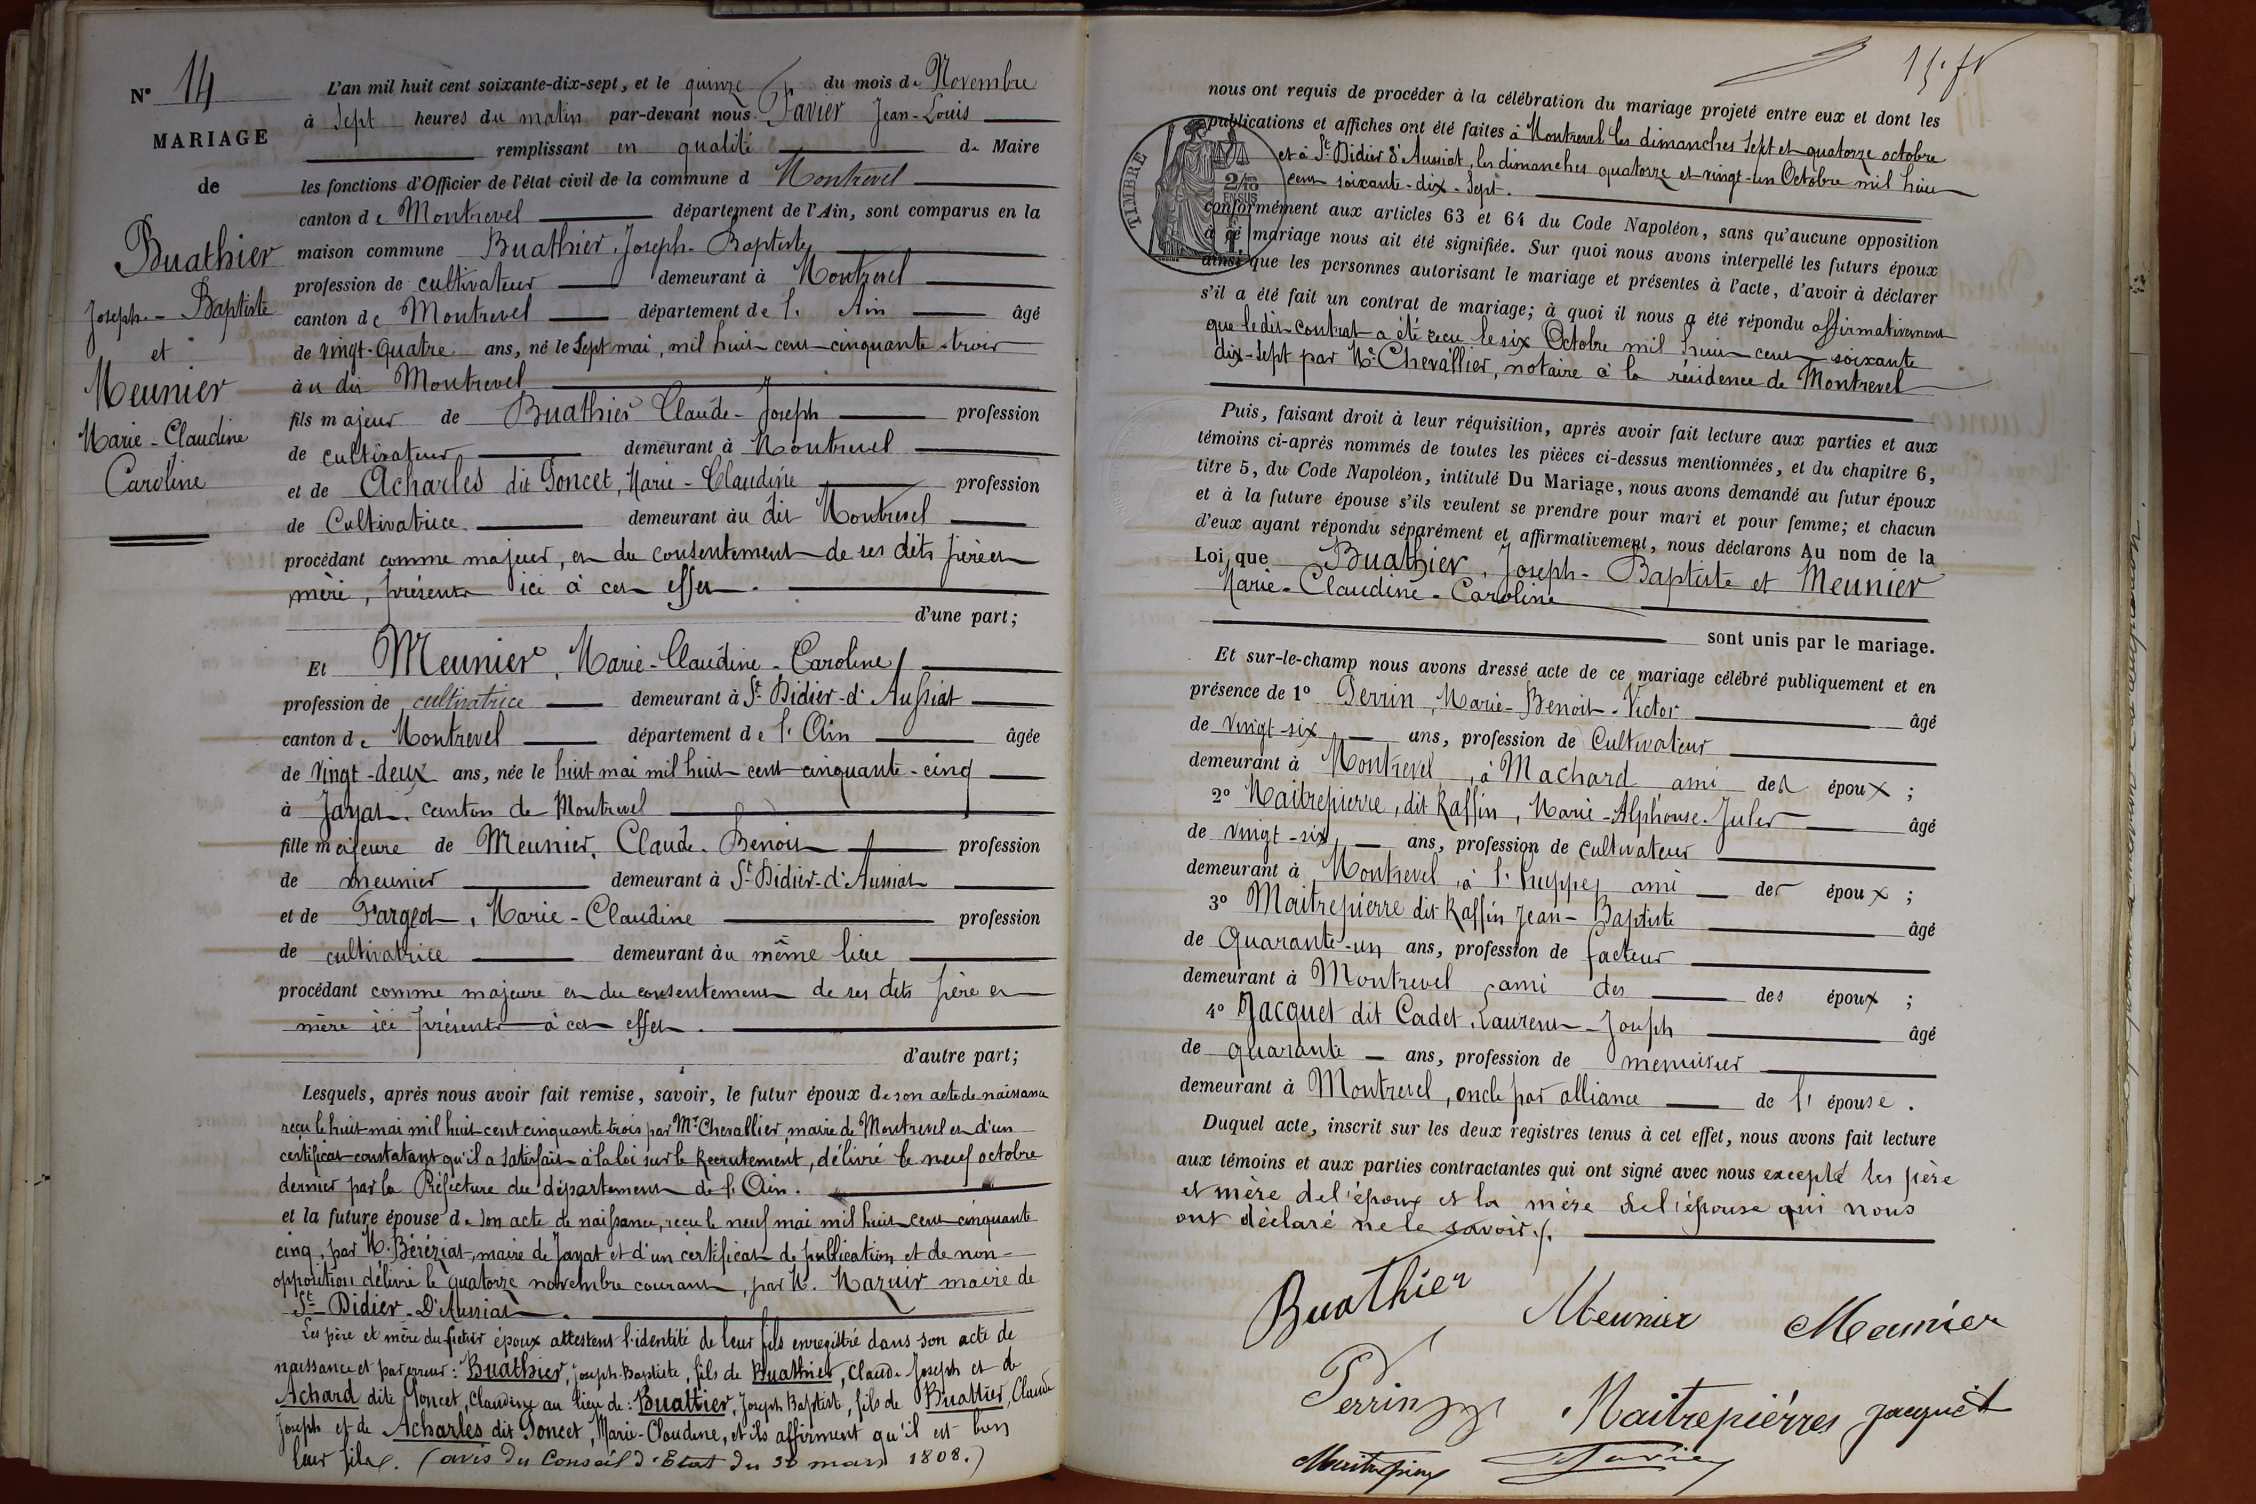 N° 14
MARIAGE
de
Buathier
Joseph-Baptiste
et
Meunier
Marie-Claudine
Caroline
L'an mil huit cent soixante-dix-sept, et le quinze du mois de Novembre
à Sept heures du matin par-devant nous Favier Jean-Louis
remplissant en qualité de Maire
les fonctions d'Officier de l'état civil de la commune d Montrevel
canton de Montrevel département de l'Ain, sont comparus en la
maison commune Buathier, Joseph-Baptiste
profession de cultivateur demeurant à Montrevel
canton de Montrevel département de l'Ain âgé
de vingt-quatre ans, né le Sept mai, mil huit cent cinquante-trois
au dit Montrevel
fils majeur de Buathier Claude-Joseph profession
de cultivateur demeurant à Montrevel
et de Acharles dit Goncet, Marie-Claudine profession
de Cultivatrice demeurant au dit Montrevel
procédant comme majeur, et du consentement de ses dits père et
mère, présents ici à cet effet.
d'une part;
Et Meunier, Marie-Claudine-Caroline
profession de cultivatrice demeurant à St Didier-d'Aussiat
canton de Montrevel département de l'Ain âgée
de vingt-deux ans, née le huit mai mil huit cent cinquante-cinq
à Jayat, canton de Montrevel
fille majeure de Meunier, Claude-Benoit profession
de meunier demeurant à St Didier-d'Aussiat
et de Fargeot, Marie-Claudine profession
de cultivatrice demeurant au même lieu
procédant comme majeure et du consentement de ses dits père et
mère ici présents à cet effet.
d'autre part;
Lesquels, après nous avoir fait remise, savoir, le futur époux de son acte de naissance
reçu le huit mai mil huit cent cinquante trois par Mr Chevallier, maire de Montrevel et d'un
certificat constatant qu'il a satisfait à la loi sur le Recrutement, délivré le neuf octobre
dernier par la Préfecture du département de l'Ain.
et la future épouse de son acte de naissance, reçu le neuf mai mil huit cent cinquante
cinq, par M. Béréziat, maire de Jayat et d'un certificat de publication et de non-
opposition délivré le quatorze novembre courant, par M. Mazuir maire de
St Didier-D'Aussiat.
Les père et mère du futur époux attestent l'identité de leur fils enregistré dans son acte de
naissance et par erreur: Buathier, Joseph-Baptiste, fils de Buathier, Claude Joseph et de
Achard dite Goncet, Claudine au lieu de: Buattier, Joseph Baptiste, fils de Buattier, Claude
Joseph et de Acharles dit Goncet, Marie-Claudine, et ils affirment qu'il est bien
leur fils. (avis du Conseil d'Etat du 30 mars 1808.)
nous ont requis de procéder à la célébration du mariage projeté entre eux et dont les
publications et affiches ont été faites à Montrevel les dimanches Sept et quatorze octobre
et à St Didier d'Aussiat, les dimanches quatorze et vingt-un Octobre mil huit
cent soixante-dix-Sept.
TIMBRE
conformément aux articles 63 et 64 du Code Napoléon, sans qu'aucune opposition
à ce mariage nous ait été signifiée. Sur quoi nous avons interpellé les futurs époux
ainsi que les personnes autorisant le mariage et présentes à l'acte, d'avoir à déclarer
s'il a été fait un contrat de mariage; à quoi il nous a été répondu affirmativement
que le dit contrat a été reçu le six Octobre mil huit cent soixante
dix-Sept par Me Chevallier, notaire à la résidence de Montrevel
Puis, faisant droit à leur réquisition, après avoir fait lecture aux parties et aux
témoins ci-après nommés de toutes les pièces ci-dessus mentionnées, et du chapitre 6,
titre 5, du Code Napoléon, intitulé Du Mariage, nous avons demandé au futur époux
et à la future épouse s'ils veulent se prendre pour mari et pour femme; et chacun
d'eux ayant répondu séparément et affirmativement, nous déclarons Au nom de la
Loi, que Buathier, Joseph-Baptiste et Meunier
Marie-Claudine-Caroline
sont unis par le mariage.
Et sur-le-champ nous avons dressé acte de ce mariage célébré publiquement et en
présence de 1° Perrin, Marie-Benoit-Victor âgé
de vingt-six ans, profession de Cultivateur
demeurant à Montrevel, à Machard ami des époux;
2° Maitrepierre, dit Raffin, Marie-Alphonse-Jules âgé
de vingt-six ans, profession de cultivateur
demeurant à Montrevel, à l'huppe, ami des époux;
3° Maitrepierre dit Raffin Jean-Baptiste âgé
de Quarante-un ans, profession de facteur
demeurant à Montrevel, ami des des époux;
4° Jacquet dit Cadet, Laurent-Joseph âgé
de quarante ans, profession de menuisier
demeurant à Montrevel, oncle par alliance de l'épouse.
Duquel acte, inscrit sur les deux registres tenus à cet effet, nous avons fait lecture
aux témoins et aux parties contractantes qui ont signé avec nous excepté les père
et mère de l'époux et la mère de l'épouse qui nous
ont déclaré ne le savoir./.
Buathier Meunier Meunier
Perrin Maitrepierres Jacquet
Maitrepierre Favier